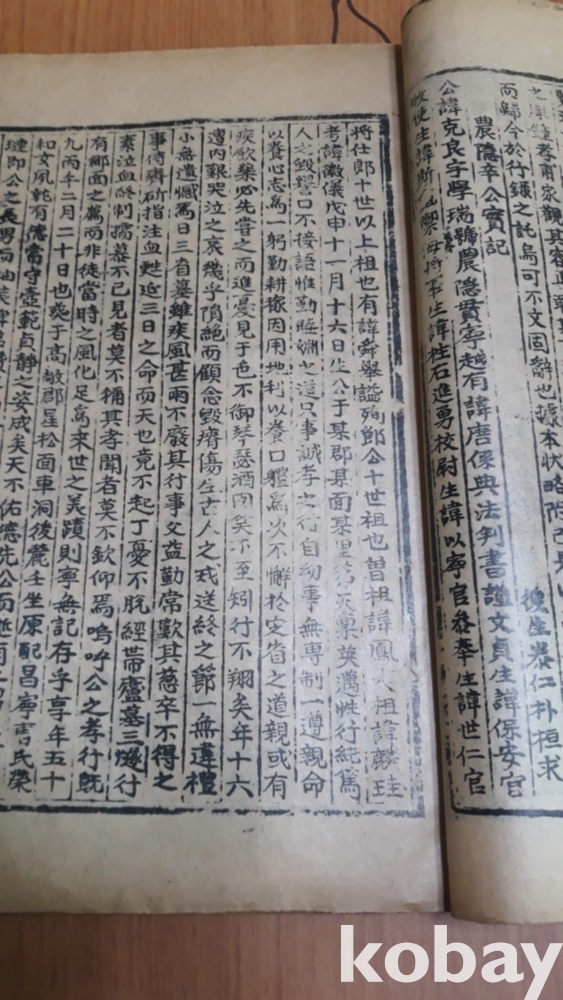 之
孝甫家觀其審
而歸今於行錄之託烏可不文固辭也據本狀略
後生泰仁朴桓求
農隱辛公實記
公諱克良字學瑞號農隱貫寧越有諱唐保典法判書諡文貞生諱保安官
生諱柱石進勇校尉生諱以寧官參奉生諱世仁官
將仕郎十世以上祖也有諱舜舉謚殉節公十世祖也曾祖諱鳳 祖諱麟
考諱徽儀戊申十一月十六日生公于某郡某面某里第天稟英邁性行純篤
人之毀譽口不接語惟勤 之道只事誠孝之行自幼事無專制一遵親命
以養心志為一躬勤耕稼因用地利以養口體為次不懈於定省之道親或有
疾飲藥必先嘗之而進憂見于色不御琴瑟酒肉矣不至 行不翔矣年十六
遭內艱哭泣之哀幾乎隕絕而顧念毀瘠傷生古人之戒送終之節一無違禮
小無遺憾焉日三省墓雖疾風甚雨不廢其行事父益勤常歎其慈卒不得之
事侍 斫指注血甦延三日之命而天也竟不起丁憂不脫經帶廬墓三 行
素泣血終制孺慕不已見者莫不稱其孝聞者莫不欽仰焉嗚呼公之孝行既
有鄉面之薦而非徒當時之風化足為來世之美蹟則寧無記存乎享年五十
九丙午二月二十日也 于高敞郡星松面車洞後麓壬坐原配昌寧曺氏榮
和女夙 有儀當守壺範貞靜之姿成矣天不佑德先公而
璉即公之長男而
kobay